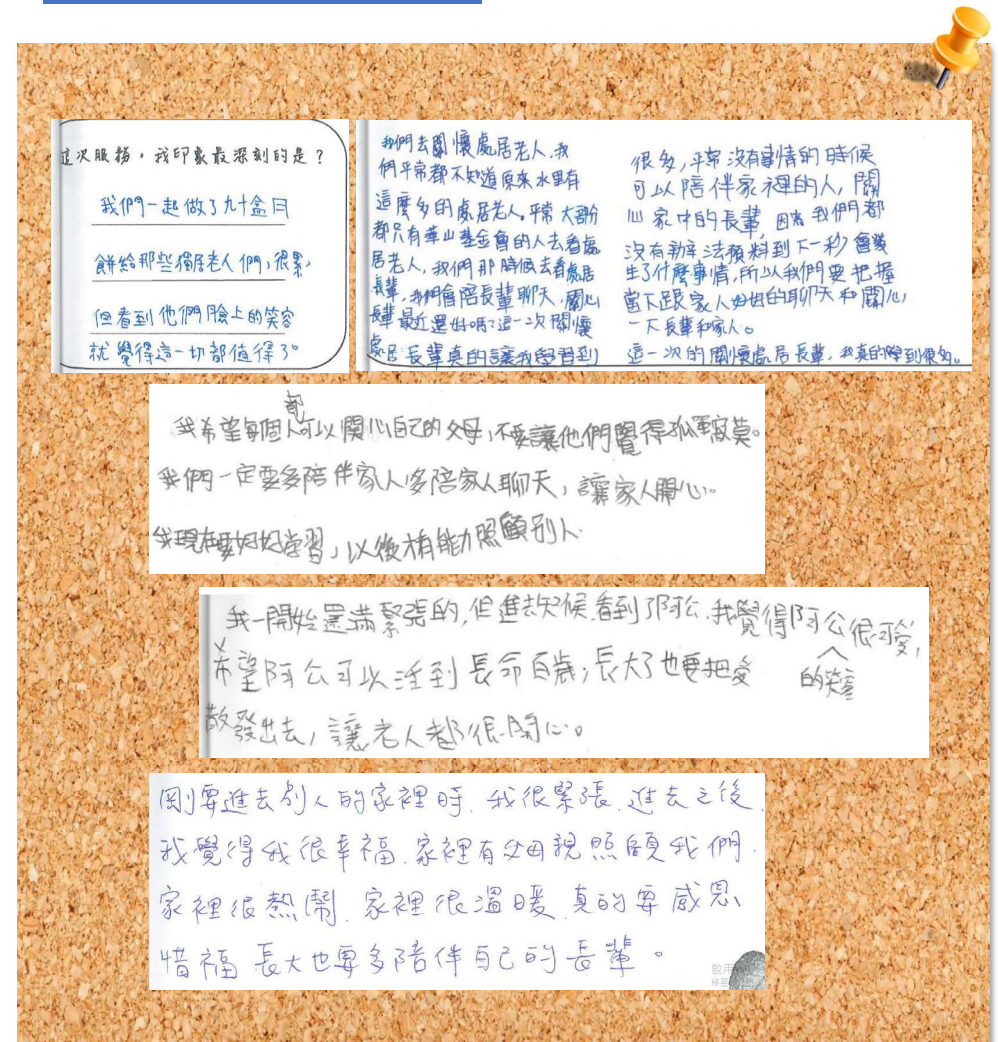 這次服務，我印象最深刻的是？
我們一起做了九十盒月
餅給那些獨居老人們，很累，
但看到他們臉上的笑容
就覺得這一切都值得了。
我們去關懷處居老人，我
們平常都不知道原來水里有
這麼多的處居老人。平常大部分
都只有華山基金會的人去看處
居老人，我們那時候去看處居
長輩，我們會陪長輩聊天，關心
長輩最近還好嗎？這一次關懷
處居長輩真的讓我學習到
很多，平常沒有事情的時候
可以陪伴家裡的人，關
心家中的長輩，因為我們都
沒有辦法預料到下一秒會發
生了什麼事情，所以我們要把握
當下跟家人好好的聊天和關心
一下長輩和家人。
這一次的關懷處居長輩，我真的學到很多。
我希望每個人都可以關心自己的父母，不要讓他們覺得孤單寂寞。
我們一定要多陪伴家人多陪家人聊天，讓家人開心。
我現在要好好學習，以後才有能力照顧別人
我一開始還滿緊張的，但進去時候看到阿公，我覺得阿公的笑容很可愛，
希望阿公可以活到長命百歲，長大了也要把愛
散發出去，讓老人都很開心。
剛要進去別人的家裡時，我很緊張，進去之後
我覺得我很幸福，家裡有父母親照顧我們
家裡很熱鬧，家裡很溫暖，真的要感恩
惜福 長大也要多陪伴自己的長輩。
啟用